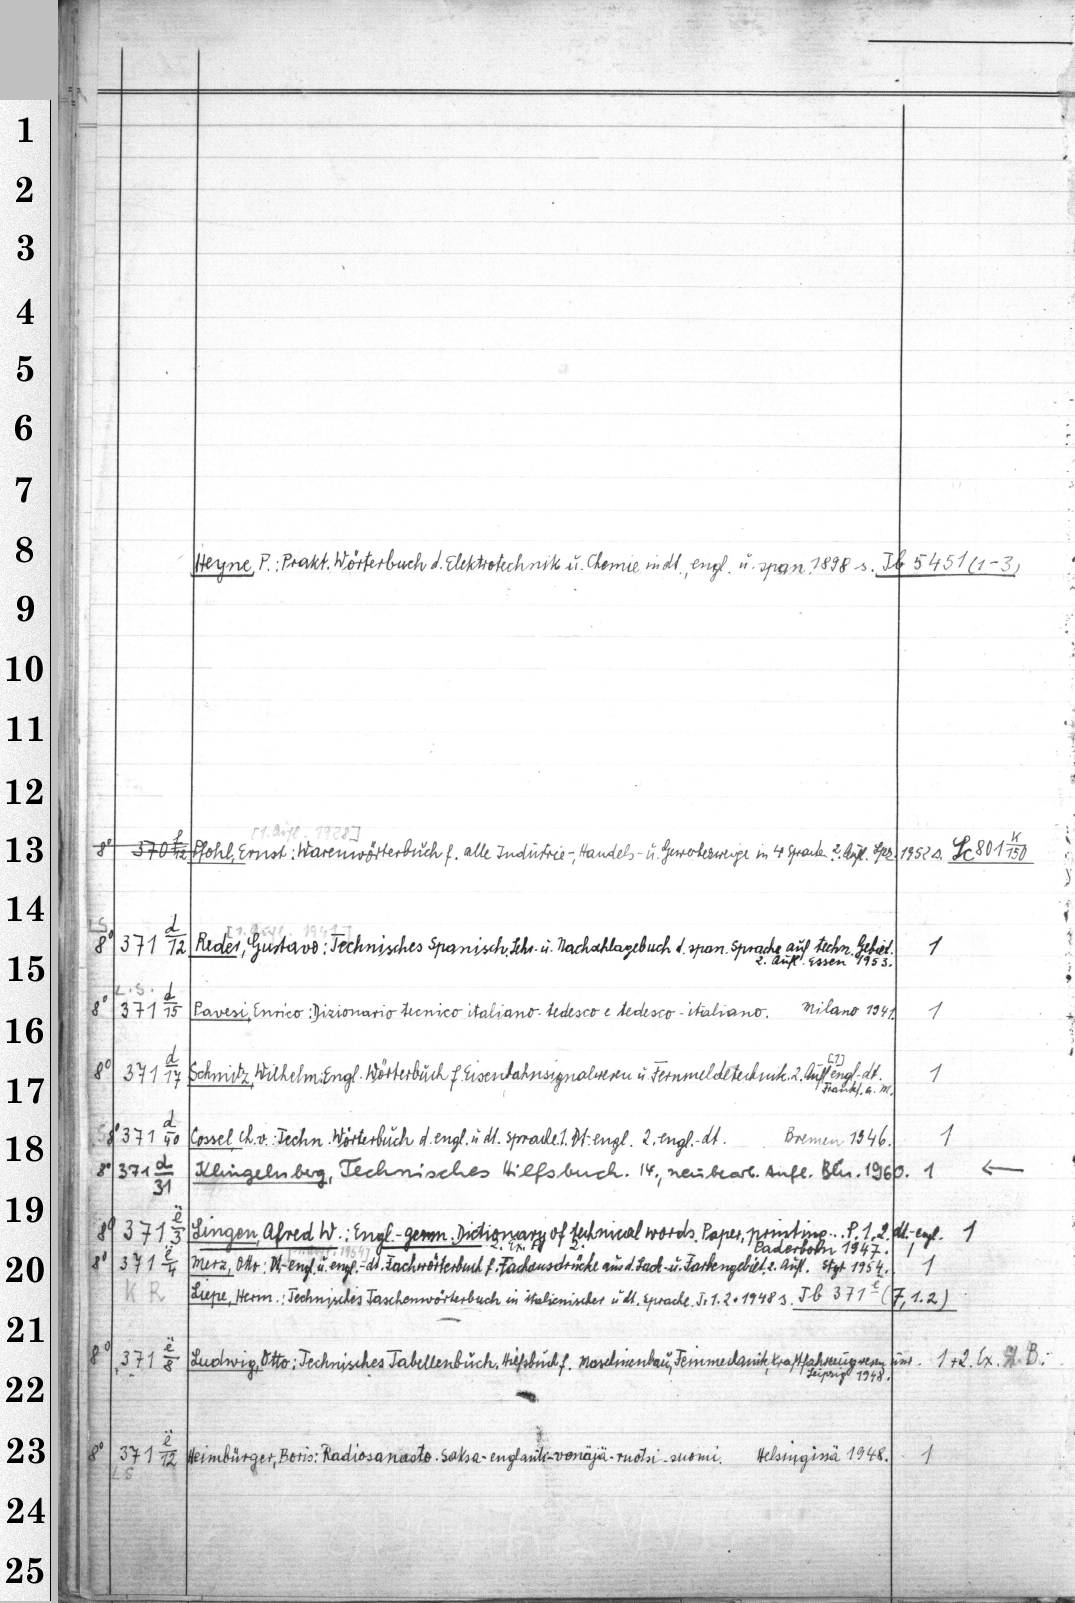 1
2
3
4
5
6
7
8
Heyne, P.: Prakt. Wörterbuch d. Elektrotechnik ü. Chemie in dt., engl. ü. span. 1898 s. Jb 5451 (1-3)
9
10
11
12
[1. Aufl. 1928]
13
8° 370 Pfohl, Ernst: Warenwörterbüch f. alle Indüstrie-, Handels- ü. Gewerbezweige in 4 Sprach. 2. Aüfl. Lpz. 1952 s. Lc 801 K/150
14
LS
[1. Aufl. 1941]
8° 371 d/12 Reder, Gustavo: Technisches Spanisch. Lehr- ü. Nachschlagebuch d. span. Sprache aüf techn. Gebiet. 1
2. Aüfl. Essen 1953.
15
L.S.
8° 371 d/15 Pavesi, Enrico: Dizionario tecnico italiano-tedesco e tedesco-italiano. Milano 1941. 1
16
[1]
8° 371 d/17 Schmitz, Wilhelm: Engl. Wörterbüch f. Eisenbahnsignalwesen ü. Fernmeldetechnik. 2. Aüfl. engl.-dt. 1
Frankf. a. M.
17
8° 371 d/40 Cossel, Ch. v.: Techn. Wörterbüch d. engl. ü. dt. Sprache. 1. Dt.-engl. 2. engl.-dt. Bremen 1946. 1
18
8° 371 d/31 Klingelnberg, Technisches Hilfsbuch. 14., neubearb. Aufl. Bln. 1960. 1 ←
19
8° 371 ë/3 Lingen, Alfred W.: Engl.-germ. Dictionary of technical words. Paper, printing... P. 1. 2. dt.-engl. 1
2. Ex. 2. Paderborn 1947. 1
20
8° 371 ë/4 Merz, Otto: Dt.-engl. ü. engl.-dt. Fachwörterbuch f. Fachausdrücke aus d. Lack- ü. Farbengebiet. 2. Aüfl. Stgt 1954. 1
K R Liepe, Herm.: Technisches Taschenwörterbuch in italienischer ü. dt. Sprache. T. 1. 2. 1948 s. Jb 371 e (7, 1.2)
21
8° 371 ë/8 Ludwig, Otto: Technisches Tabellenbüch. Hilfsbüch f. Maschinenbaü, Feinmechanik, Kraftfahrzeugwesen üsw. 1+2. Ex. B.
Leipzig 1948.
22
23
8° 371 ë/12 Heimbürger, Boris: Radiosanasto. Saksa-englanti-venäjä-ruotsi-suomi. Helsingissä 1948. 1
LS
24
25